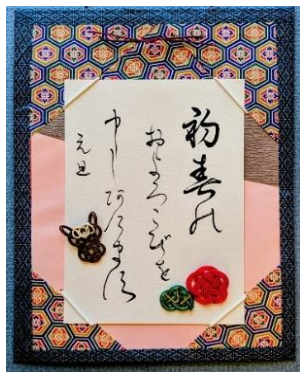 初春の
およろこびを
申しあけます
元旦